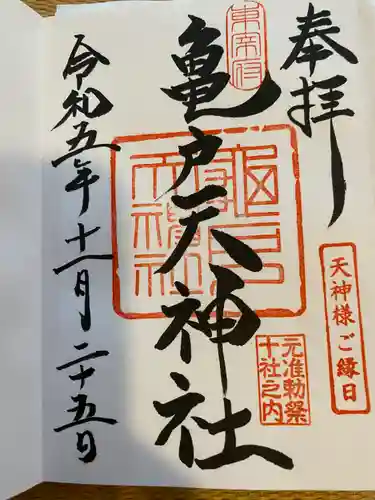 奉拝
天神様ご縁日
亀戸天神社
元准勅祭
十社之内
令和五年十一月二十五日